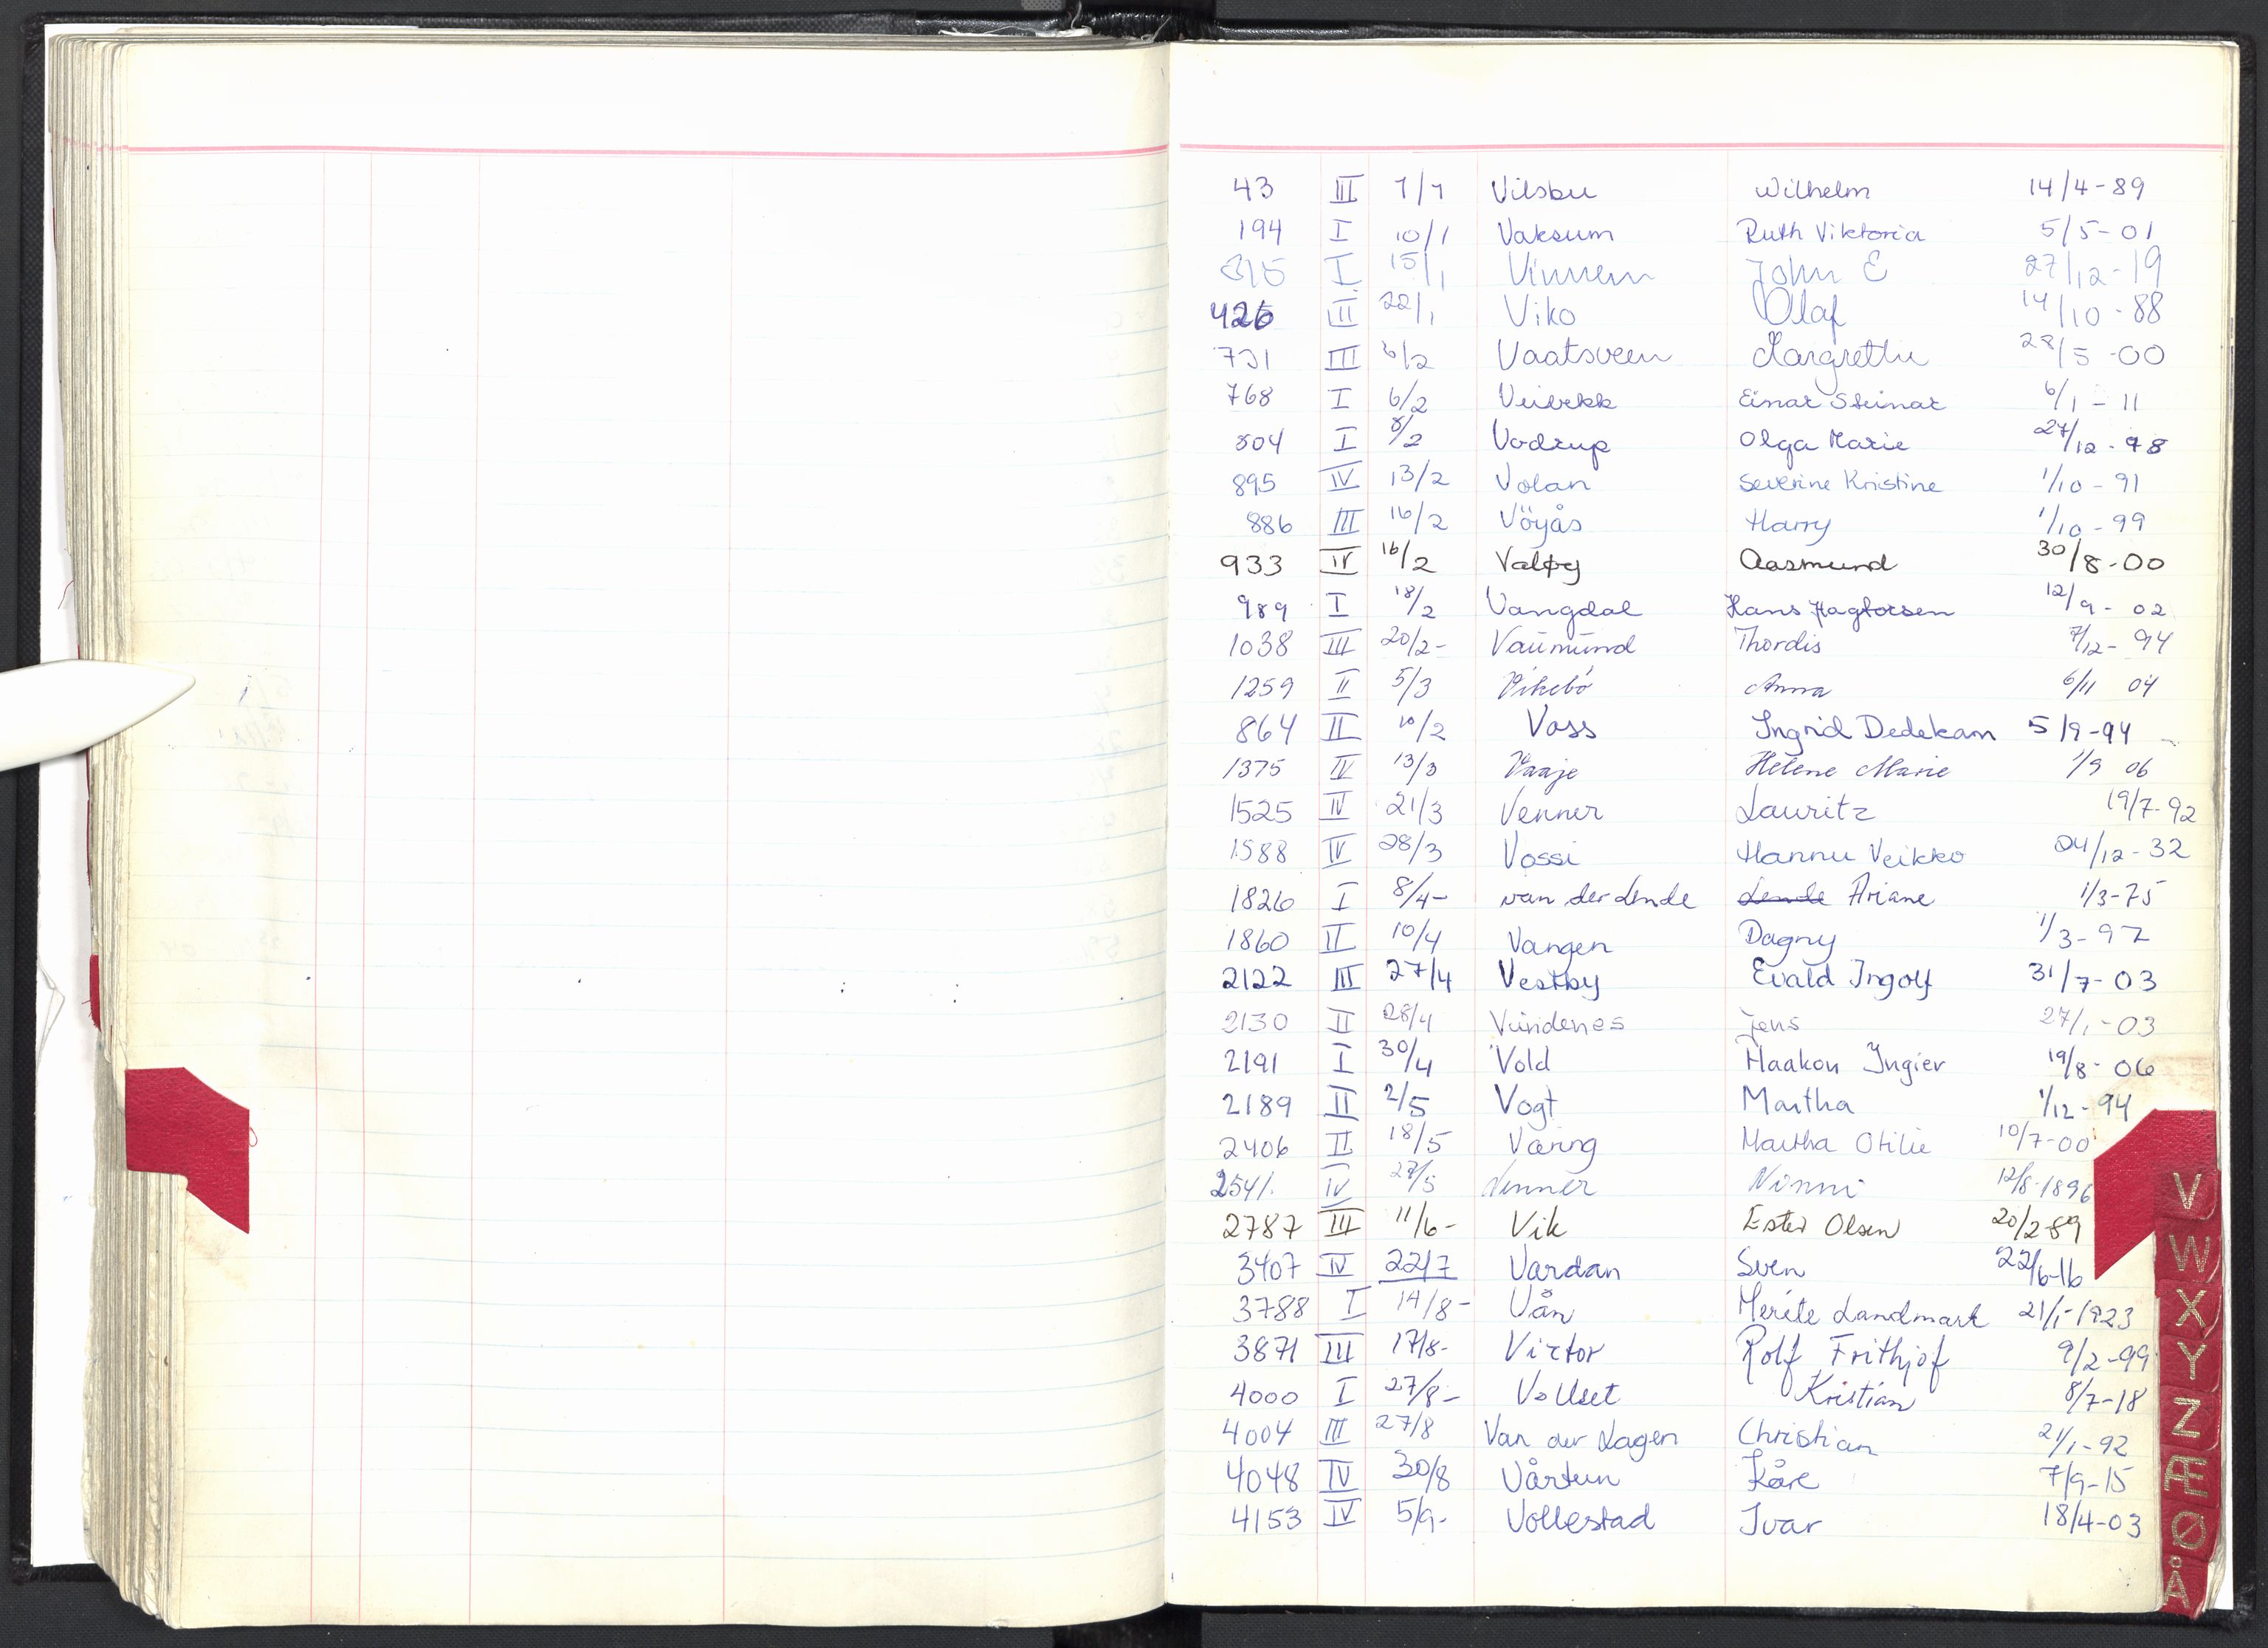 43 III 7/1 Vilsbu Wilhelm 14/4-89
194 I 10/1 Vaksum Ruth Viktoria 5/5-01
315 I 15/1 Vinnem John E 27/12-19
426 III 22/1 Viko Olaf 14/10-88
731 III 6/2 Vaatsveen Margrethe 28/5-00
768 I 6/2 Veibekk Einar Steinar 6/1-11
804 I 8/2 Vodrup Olga Marie 27/12-98
895 IV 13/2 Volan Severine Kristine 1/10-91
886 III 16/2 Vöyås Harry 1/10-99
933 IV 16/2 Valøy Aasmund 30/8-00
989 I 18/2 Vangdal Hans Hagforsen 12/9-02
1038 III 20/2- Vaumund Thordis 7/12-94
1259 II 5/3 Vikebö Anna 6/11 04
864 II 10/2 Voss Ingrid Dedekam 5/9-94
1375 IV 13/3 Vaaje Helene Marie 1/9 06
1525 IV 21/3 Venner Lauritz 19/7-92
1588 IV 28/3 Vossi Hannu Veikko 24/12-32
1826 I 8/4- van der Lende Lende Ariane 1/3-75
1860 II 10/4 Vangen Dagny 1/3-97
2122 III 27/4 Vestby Evald Ingolf 31/7-03
2130 II 28/4 Vindenes Jens 27/1-03
2191 I 30/4 Vold Haakon Ingier 19/8-06
2189 II 2/5 Vogt Martha 1/12-94
2406 II 18/5 Væring Martha Otilie 10/7-00
2541 IV 27/5 Venner Ninni 12/8-1896
2787 III 11/6- Vik Ester Olsen 20/2-89
3407 IV 22/7 Vardan Sven 22/6-16
3788 I 14/8- Vån Merete Landmark 21/1-1923
3871 III 17/8- Victor Rolf Frithjof 9/2-99
4000 I 27/8- Vollset Kristian 8/7-18
4004 III 27/8 Van der Hagen Christian 21/1-92
4048 IV 30/8 Vårtun Kåre 7/9-15
4153 IV 5/9- Vollestad Ivar 18/4-03
V
W
X
Y
Z
Æ
Ø
Å